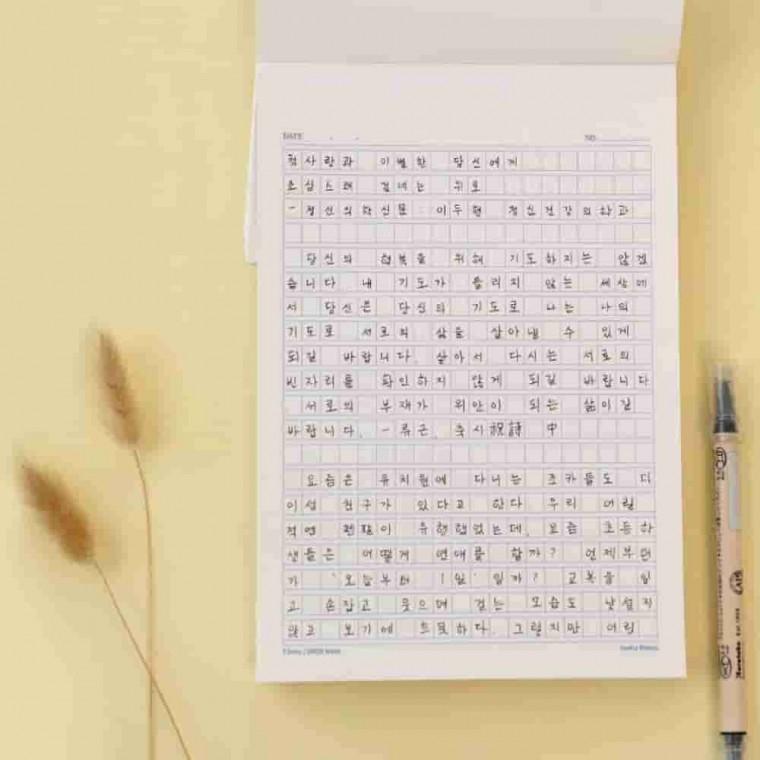 DATE . .
NO.
첫사랑과 이별한 당신에게
조심스레 건네는 위로
-정신의학신문 : 이두형 정신건강의학과
당신의 행복을 위해 기도하지는 않겠
습니다 내 기도가 들리지 않는 세상에
서 당신은 당신의 기도로 나는 나의
기도로 서로의 삶을 살아낼 수 있게
되길 바랍니다. 살아서 다시는 서로의
빈자리를 확인하지 않게 되길 바랍니다
서로의 부재가 위안이 되는 삶이길
바랍니다. -류근, 축시祝詩 中
요즘은 유치원에 다니는 조카들도 다
이성 친구가 있다고 한다 우리 어릴
적엔 펜팔이 유행했었는데, 요즘 초등학
생들은 어떻게 연애를 할까? 언제부턴
가 '오늘부터 1일' 일까? 교복을 입
고 손잡고 웃으며 걷는 모습도 낯설지
않고 보기에 흐뭇하다. 그렇지만 어릴